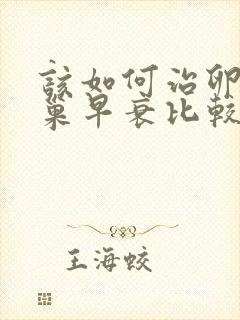 该如何治卵
巢早衰比较
王海蛟